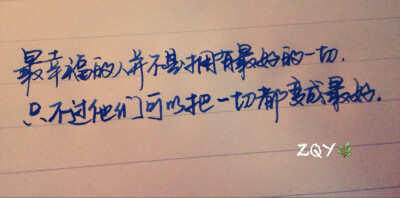 最幸福的人并不是拥有最好的一切.
只不过他们可以把一切都变成最好.
ZQY